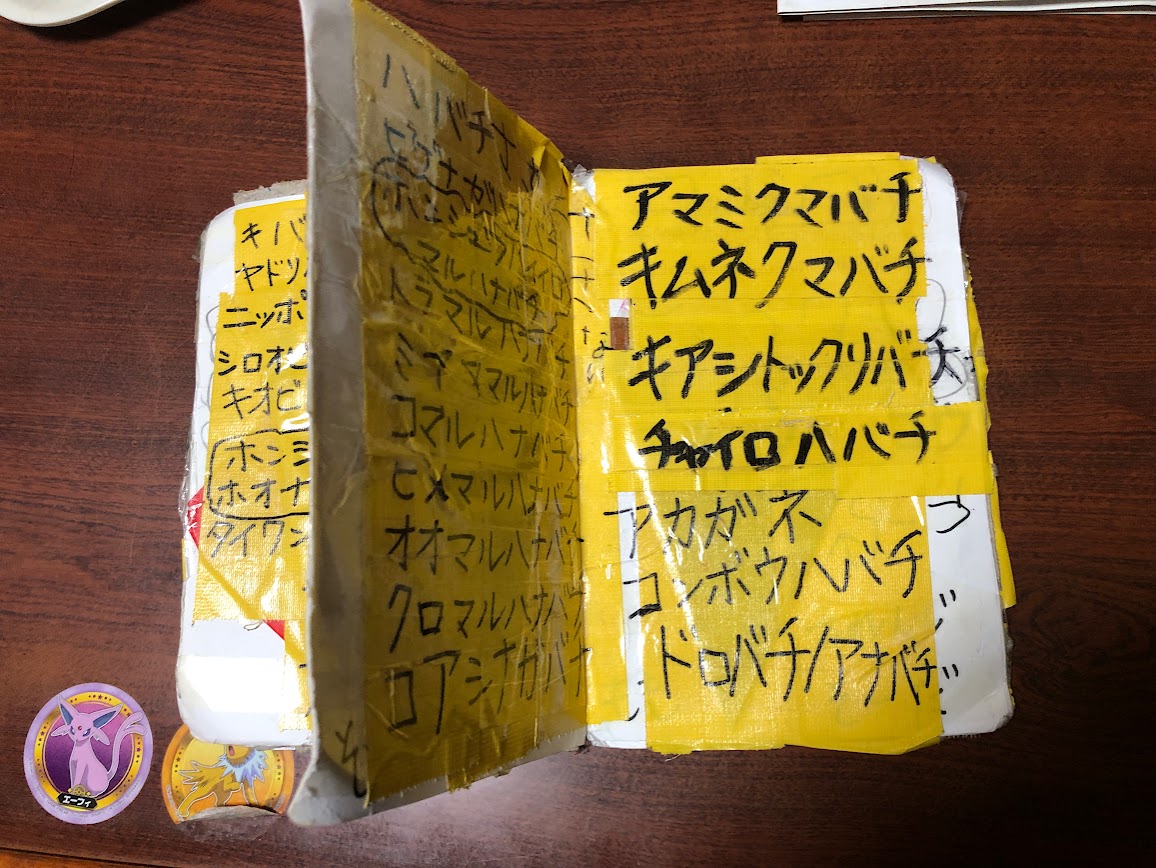 キバ
ヤドリ
ニッポ
シロオビ
キオビ
ホンシ
ホオナ
タイワン
トラマルハナバチ
コマルハナバチ
ヒメマルハナバチ
オオマルハナバチ
クロマルハナバチ
アマミクマバチ
キムネクマバチ
キアシトックリバチ
チャイロハバチ
アカガネ
コンボウハバチ
ドロバチ/アナバチ
エーフィ